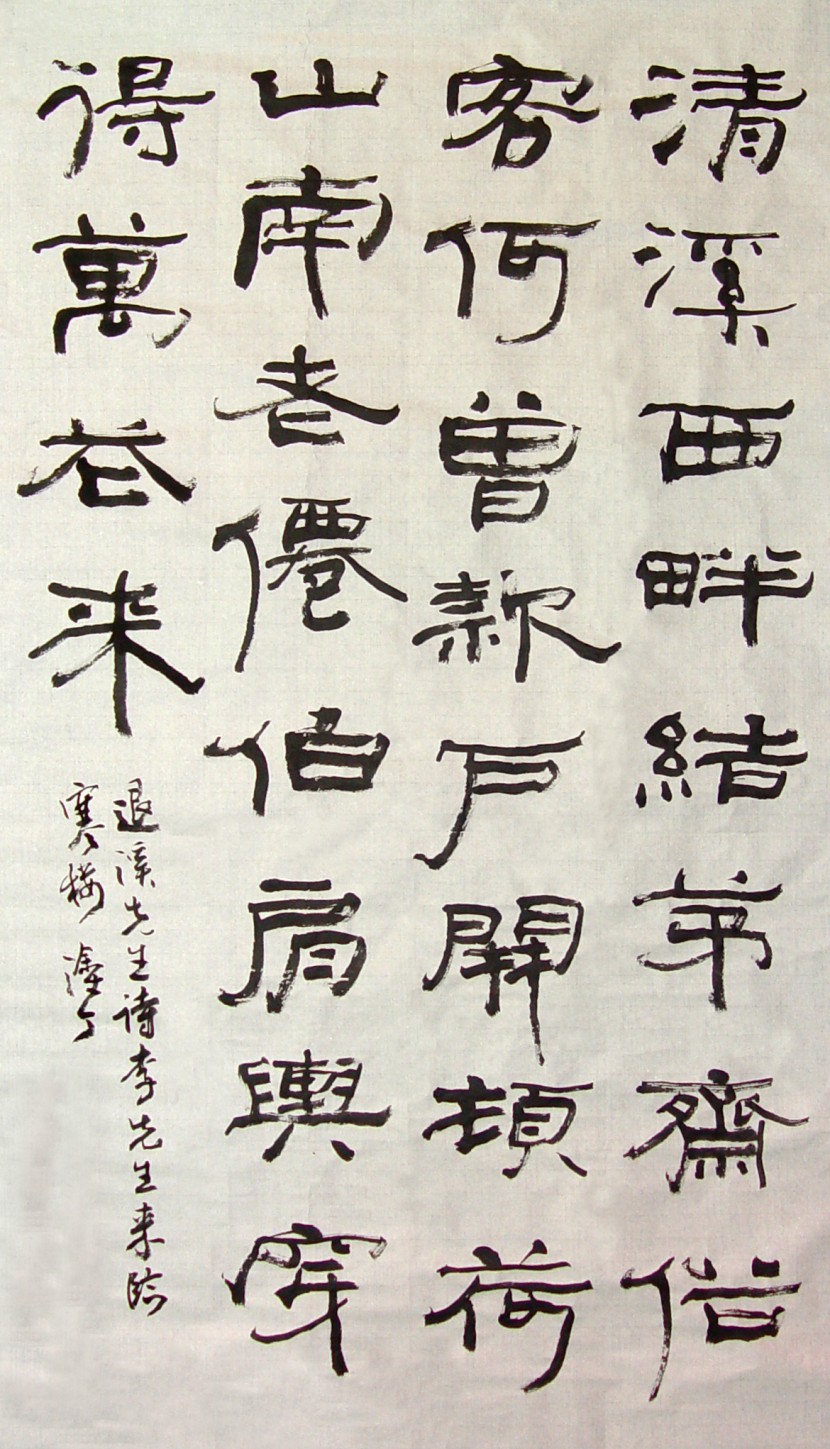 清溪西畔結茅齋俗
客何曾款戶開頓荷
山南老僊伯肩輿穿
得萬花来
退溪先生詩李先生来臨
寒栖